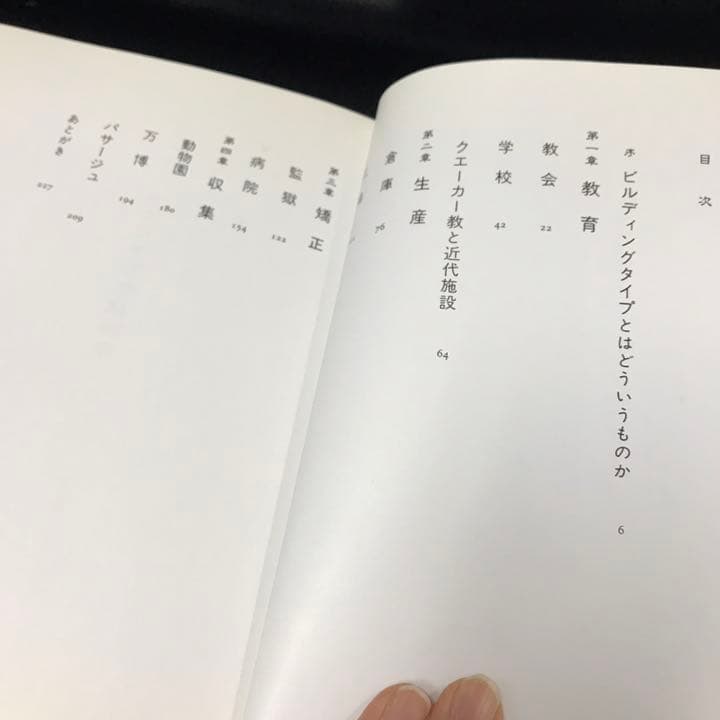 目次
序 ビルディングタイプとはどういうものか 6
第一章 教育
教会 22
学校 42
クエーカー教と近代施設 64
第二章 生産
倉庫 76
第三章 矯正
監獄 122
病院 154
第四章 収集
動物園 180
万博 194
パサージュ 209
あとがき 227